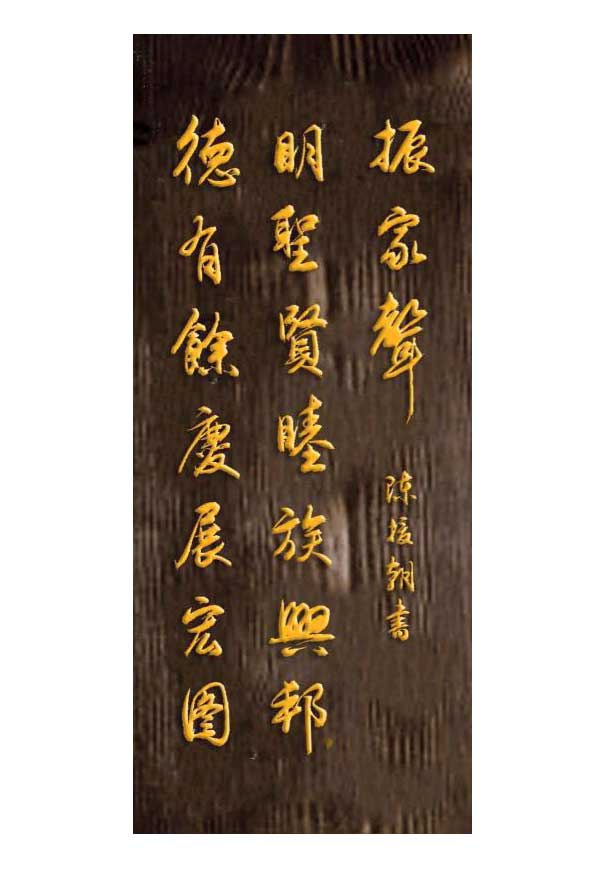 德有餘慶展宏图
明聖賢睦族興邦
振家聲
陈援朝書